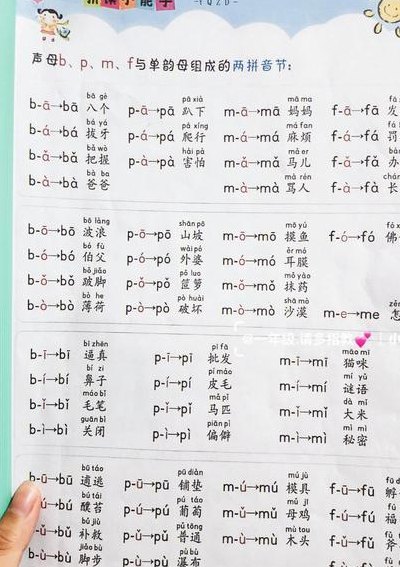 -YQZD-
声母b、p、m、f与单韵母组成的两拼音节:
bā gè pā xià mā ma
b-ā→bā 八个 p-ā→pā 趴下 m-ā→mā 妈妈 f-ā→fā 发
bá yá pá xíng má fan
b-á→bá 拔牙 p-á→pá 爬行 m-á→má 麻烦 f-á→fá 罚
bǎ wò hài pà mǎ er
b-ǎ→bǎ 把握 p-à→pà 害怕 m-ǎ→mǎ 马儿 f-ǎ→fǎ 办
bà ba mà rén
b-à→bà 爸爸 m-à→mà 骂人 f-à→fà 长
bō làng shān pō mō yú
b-ō→bō 波浪 p-ō→pō 山坡 m-ō→mō 摸鱼 f-ó→fó 佛
bó fù wài pó ěr mó
b-ó→bó 伯父 p-ó→pó 外婆 m-ó→mó 耳膜
bǒ jiǎo pǒ luo mǒ yào
b-ǒ→bǒ 跛脚 p-ǒ→pǒ 笸箩 m-ǒ→mǒ 抹药
bò he pò huài shā mò
b-ò→bò 薄荷 p-ò→pò 破坏 m-ò→mò 沙漠 m-e→me 怎
bī zhēn pī fā māo mī
b-ī→bī 逼真 p-ī→pī 批发 m-ī→mī 猫咪
bí zi pí máo mí yǔ
b-í→bí 鼻子 p-í→pí 皮毛 m-í→mí 谜语
máo bǐ mǎ pǐ dà mǐ
b-ǐ→bǐ 毛笔 p-ǐ→pǐ 马匹 m-ǐ→mǐ 大米
guān bì piān pì mì mì
b-ì→bì 关闭 p-ì→pì 偏僻 m-ì→mì 秘密
bū táo pū diàn mú jù
b-ū→bū 逋逃 p-ū→pū 铺垫 m-ú→mú 模具 f-ū→fū 孵
bú tái pú táo mǔ jī
b-ú→bú 醭苔 p-ú→pú 葡萄 m-ǔ→mǔ 母鸡 f-ú→fú 福
bǔ jiù pǔ tōng mù tou
b-ǔ→bǔ 补救 p-ǔ→pǔ 普通 m-ù→mù 木头 f-ǔ→fǔ 斧
jiǎo bù pù bù
b-ù→bù 脚步 p-ù→pù 瀑布 f-ù→fù